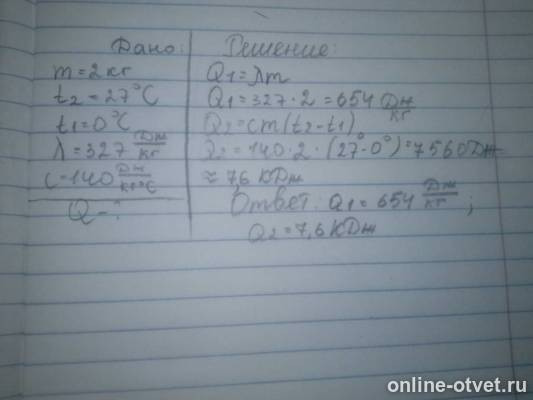 Дано:
m=2кг
t2=27°C
t1=0°C
λ=327 Дж/кг
c=140 Дж/кг°C
Q-?
Решение:
Q1=λm
Q1=327·2=654 Дж/кг
Q2=cm(t2-t1)
Q2=140·2·(27°-0°)=7560Дж
≈7,6 КДж
Ответ: Q1=654 Дж/кг ;
Q2=7,6КДж
online-otvet.ru